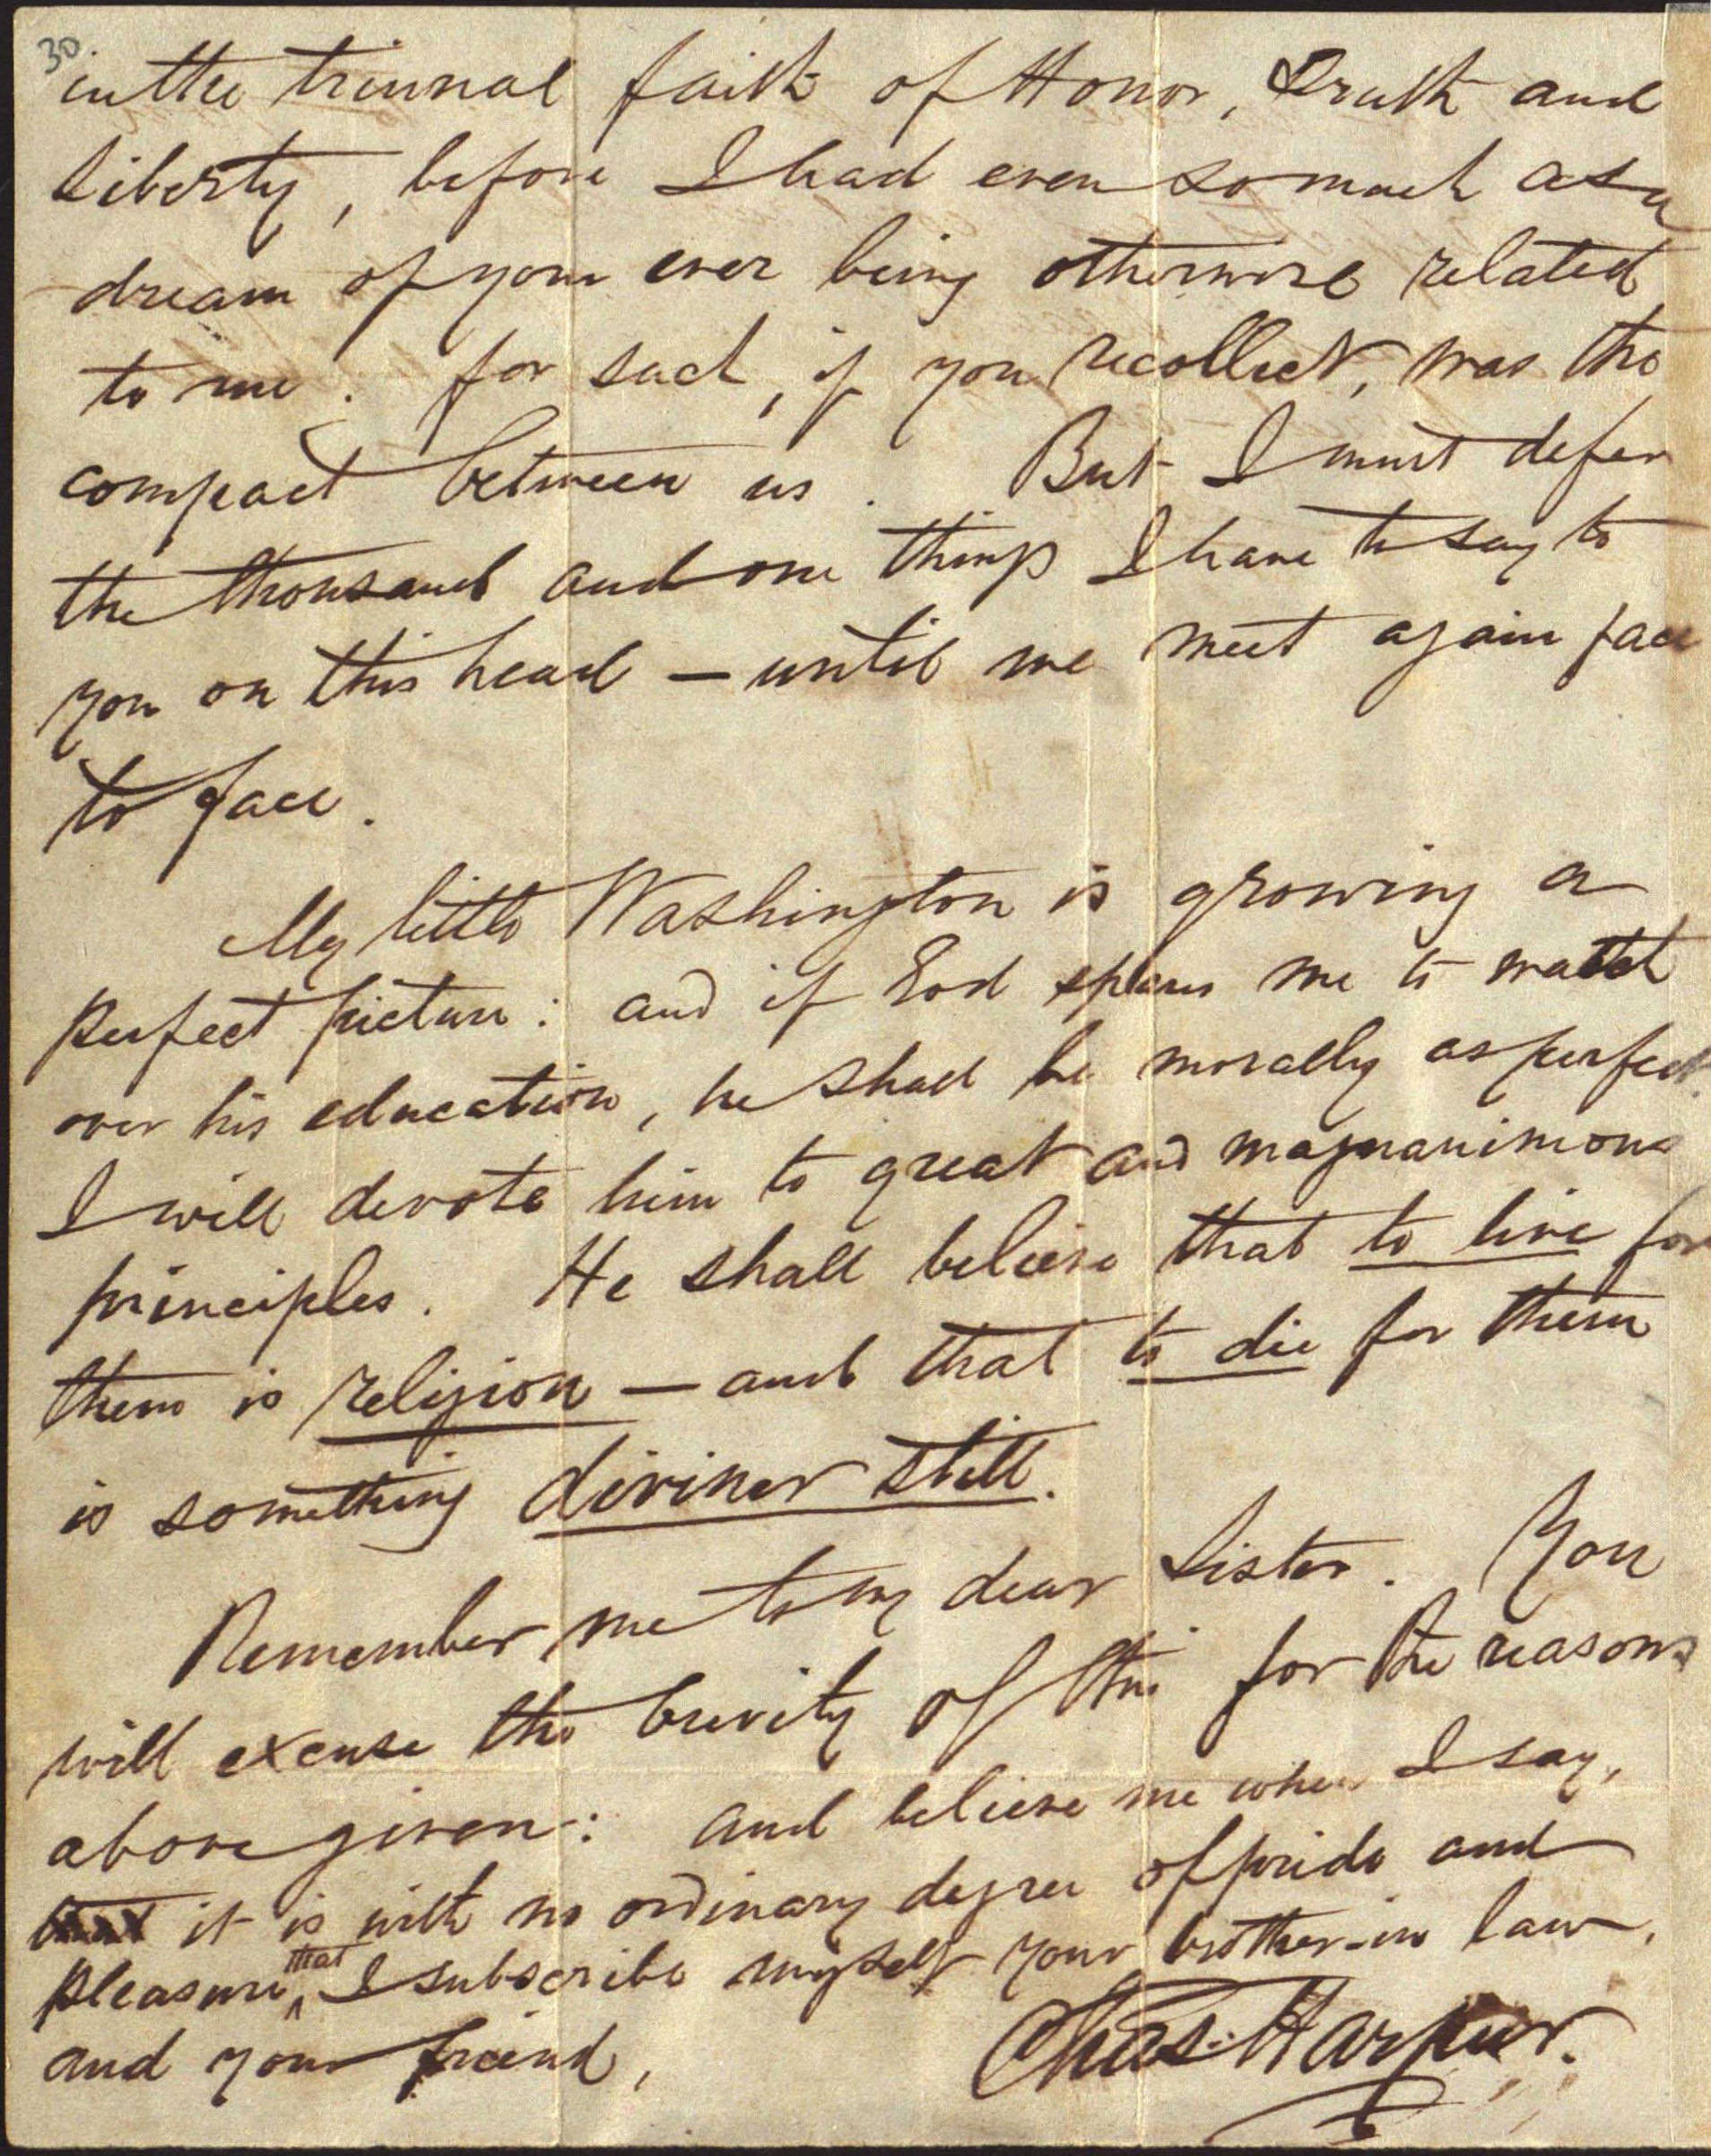 30.
in the triunal faith of Honor, Truth and
Liberty, before I had even so much as a
dream of your ever being otherwise related
to me: for such, if you recollect, was the
compact between us. But I must defer
the thousand and one things I have to say to
you on this head — until we meet again face
to face.
My little Washington is growing a
perfect picture: and if God spares me to watch
over his education, he shall be morally as perfect.
I will devote him to great and magnanimous
principles. He shall believe that to live for
them is religion — and that to die for them
is something diviner still.
Remember me to my dear Sister. You
will excuse the brevity of this for the reasons
above given: and believe me when I say,
that it is with no ordinary degree of pride and
pleasure, that I subscribe myself your brother-in law,
and your friend,
Chas. Harpur.